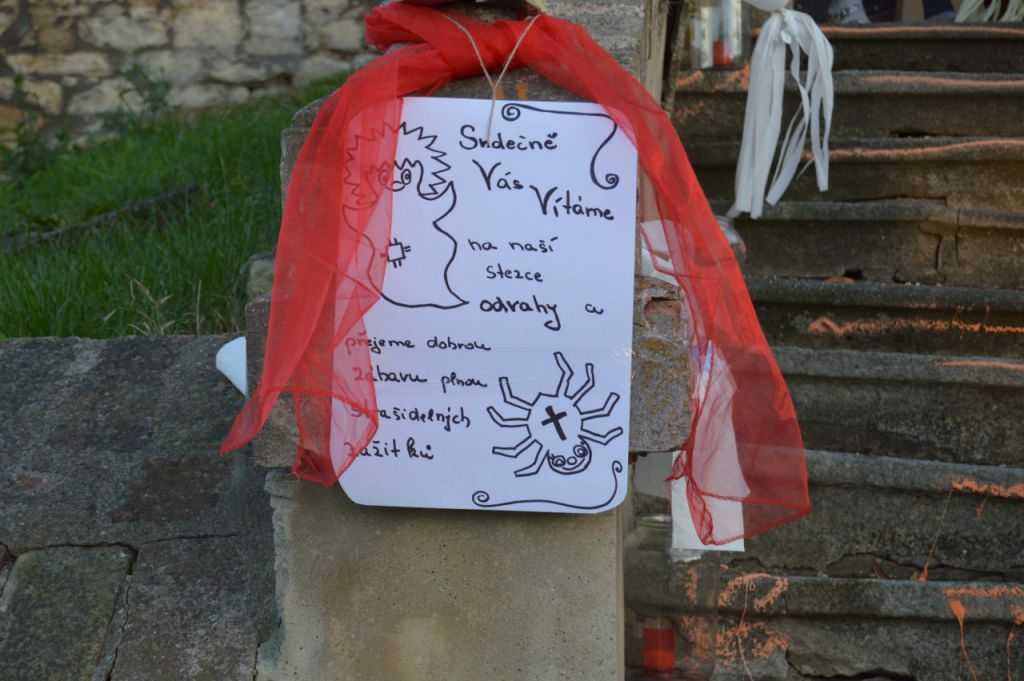 Srdečně
Vás Vítáme
na naší
stezce
odvahy a
přejeme dobrou
zábavu plnou
strašidelných
zážitků